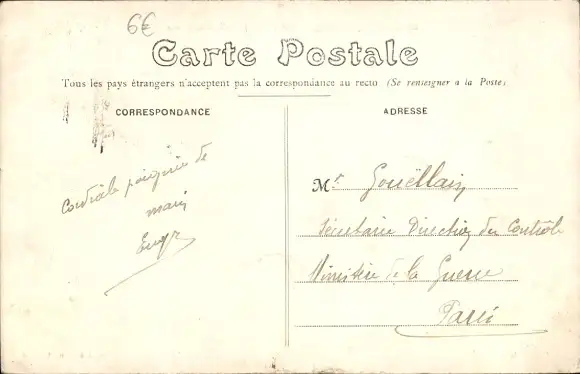 6€
Carte Postale
Tous les pays étrangers n'acceptent pas la correspondance au recto (Se renseigner à la Poste)
CORRESPONDANCE
Cordiale poignée de
main
ADRESSE
Mr Gouëllain
Secrétaire Direction du Contrôle
Ministère de la Guerre
Paris